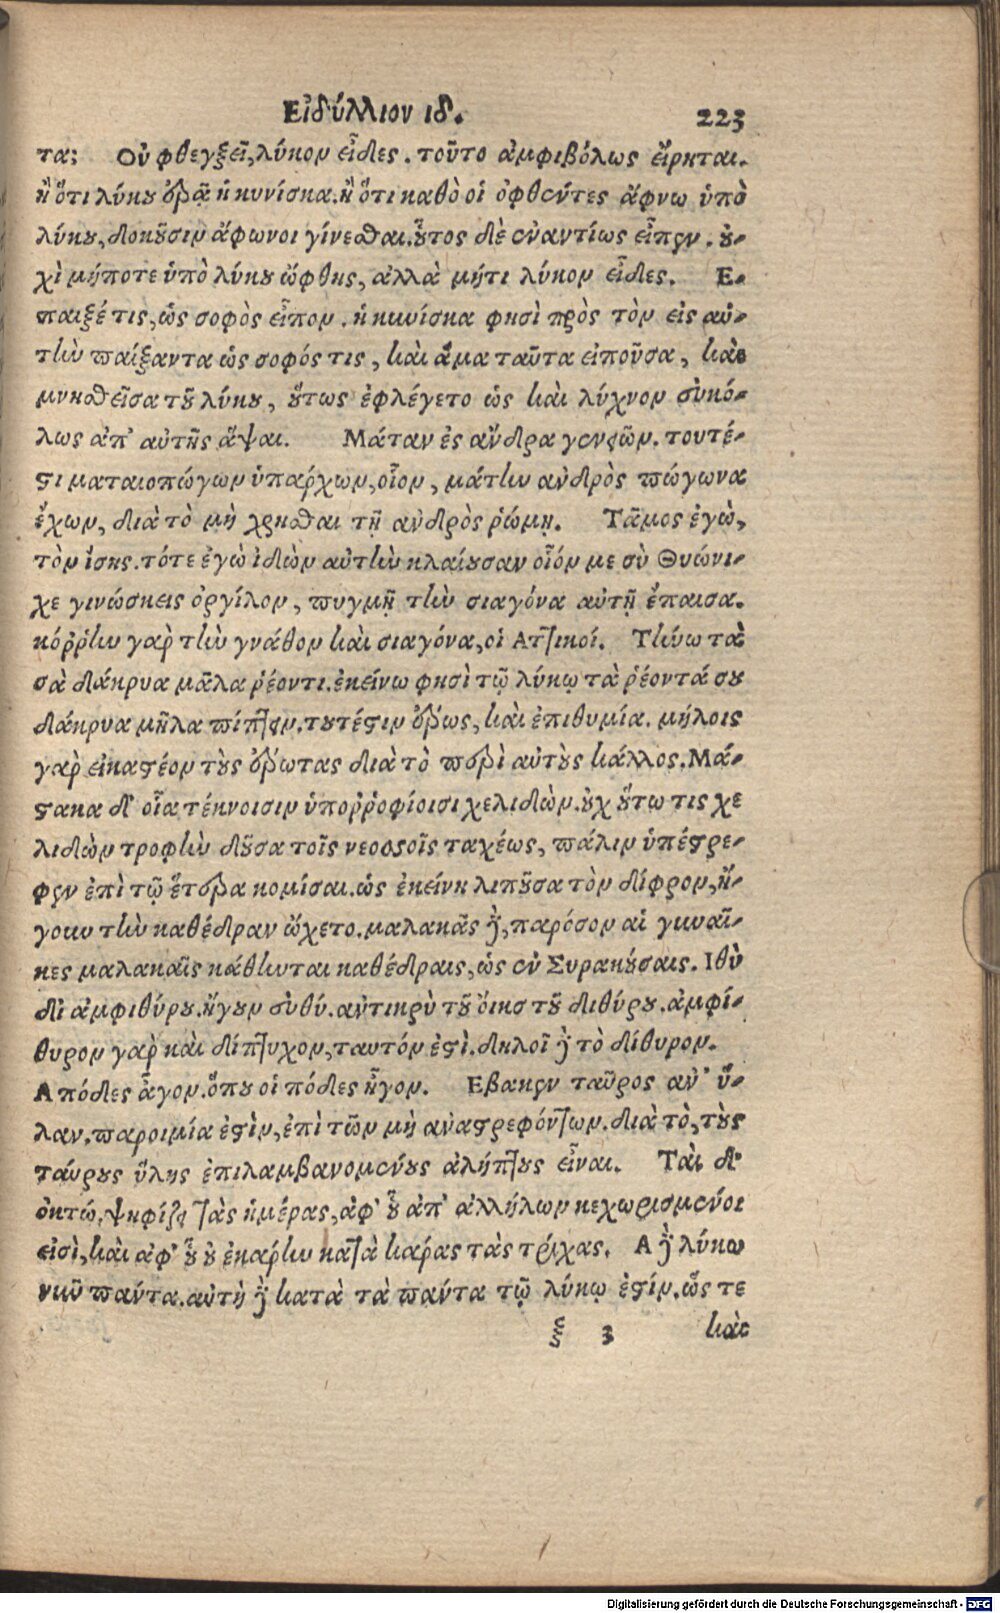 Εἰδύλλιον ιδ. 223
τα; Οὐ φθεγξεῖ, λύκον εἶδες. τοῦτο ἀμφιβόλως εἴρηται.
ἢ ὅτι λύκου ἐρᾷ ἡ κυνίσκα. ἢ ὅτι καθὸ οἱ ὀφθέντες ἄφνω ὑπὸ
λύκου, δοκοῦσιν ἄφωνοι γίνεσθαι. οὗτος δὲ ἐναντίως εἶπεν. οὐ-
χὶ μήποτε ὑπὸ λύκου ὤφθης, ἀλλὰ μήτι λύκον εἶδες. Ε-
παιξέ τις, ὡς σοφὸς εἶπον. ἡ κυνίσκα φησὶ πρὸς τὸν εἰς αὐ-
τὴν παίξαντα ὡς σοφός τις, καὶ ἅμα ταῦτα εἰποῦσα, καὶ
μνησθεῖσα τοῦ λύκου, οὕτως ἐφλέγετο ὡς καὶ λύχνον εὐκό-
λως ἀπ' αὐτῆς ἅψαι. Μάταν ἐς ἄνδρα γενειῶν. τουτέ-
στι ματαιοπώγων ὑπάρχων, οἷον, μάτην ἀνδρὸς πώγωνα
ἔχων, διὰ τὸ μὴ χρῆσθαι τῇ ἀνδρὸς ῥώμῃ. Τᾶμος ἐγὼ,
τὸν ἴσης. τότε ἐγὼ ἰδὼν αὐτὴν κλαίουσαν οἷόν με σὺ Θυώνι-
χε γινώσκεις ὀργίλον, πυγμῇ τὴν σιαγόνα αὐτῇ ἔπαισα.
κόῤῥην γὰρ τὴν γνάθον καὶ σιαγόνα, οἱ Ἀττικοί. Τήνω τὰ
σὰ δάκρυα μᾶλα ῥέοντι. ἐκείνω φησὶ τῷ λύκῳ τὰ ῥέοντά σου
δάκρυα μῆλα πίπτειν. τουτέστιν ἔρως, καὶ ἐπιθυμία. μήλοις
γὰρ εἰκαστέον τοὺς ἔρωτας διὰ τὸ περὶ αὐτοὺς κάλλος. Μά-
στακα δ' οἷα τέκνοισιν ὑποῤῥοφίοισι χελιδών. οὐχ οὕτω τις χε
λιδὼν τροφὴν δοῦσα τοῖς νεοσσοῖς ταχέως, πάλιν ὑπέστρε-
φεν ἐπὶ τῷ ἕτερα κομίσαι. ὡς ἐκείνη λιποῦσα τὸν δίφρον, ἤ-
γουν τὴν καθέδραν ᾤχετο. μαλακᾶς δὲ, παρόσον αἱ γυναῖ-
κες μαλακαῖς κάθηνται καθέδραις, ὡς ἐν Συρακούσαις. Ιθὺ
δι' ἀμφιθύρου. ἤγουν εὐθύ. ἀντικρὺ τοῦ οἴκου τοῦ διθύρου. ἀμφί-
θυρον γὰρ καὶ δίπτυχον, ταυτόν ἐστι. δηλοῖ δὲ τὸ δίθυρον.
Α πόδες ἆγον. ὅπου οἱ πόδες ἦγον. Εβακεν ταῦρος ἀν' ὕ-
λαν. παροιμία ἐστὶν, ἐπὶ τῶν μὴ ἀναστρεφόντων. διὰ τὸ, τοὺς
ταύρους ὕλης ἐπιλαμβανομένους ἀλήπτους εἶναι. Ταὶ δ'
ὀκτώ. ψηφίζει τὰς ἡμέρας, ἀφ' οὗ ἀπ' ἀλλήλων κεχωρισμένοι
εἰσὶ, καὶ ἀφ' οὗ οὐ ἐκάρην κατὰ κάρας τὰς τρίχας. Α δὲ λύκω
νιῦ πάντα. αὐτὴ δὲ κατὰ τὰ πάντα τῷ λύκῳ ἐστίν. ὥς τε
ξ 3 καὶ
Digitalisierung gefördert durch die Deutsche Forschungsgemeinschaft - DFG